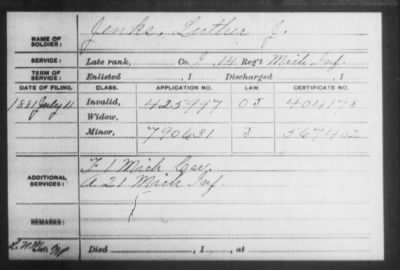 NAME OF SOLDIER: Jenks, Luther J.
SERVICE: Late rank, Co. I, 14 Reg't Mich Inf.
TERM OF SERVICE: Enlisted , 1 Discharged , 1
DATE OF FILING. CLASS. APPLICATION NO. LAW. CERTIFICATE NO.
1881 July 11 Invalid, 425997 404178
Widow,
Minor, 790631 567402
ADDITIONAL SERVICES: F 1 Mich Cav.
A 21 Mich Inf
REMARKS:
Died , 1 , at